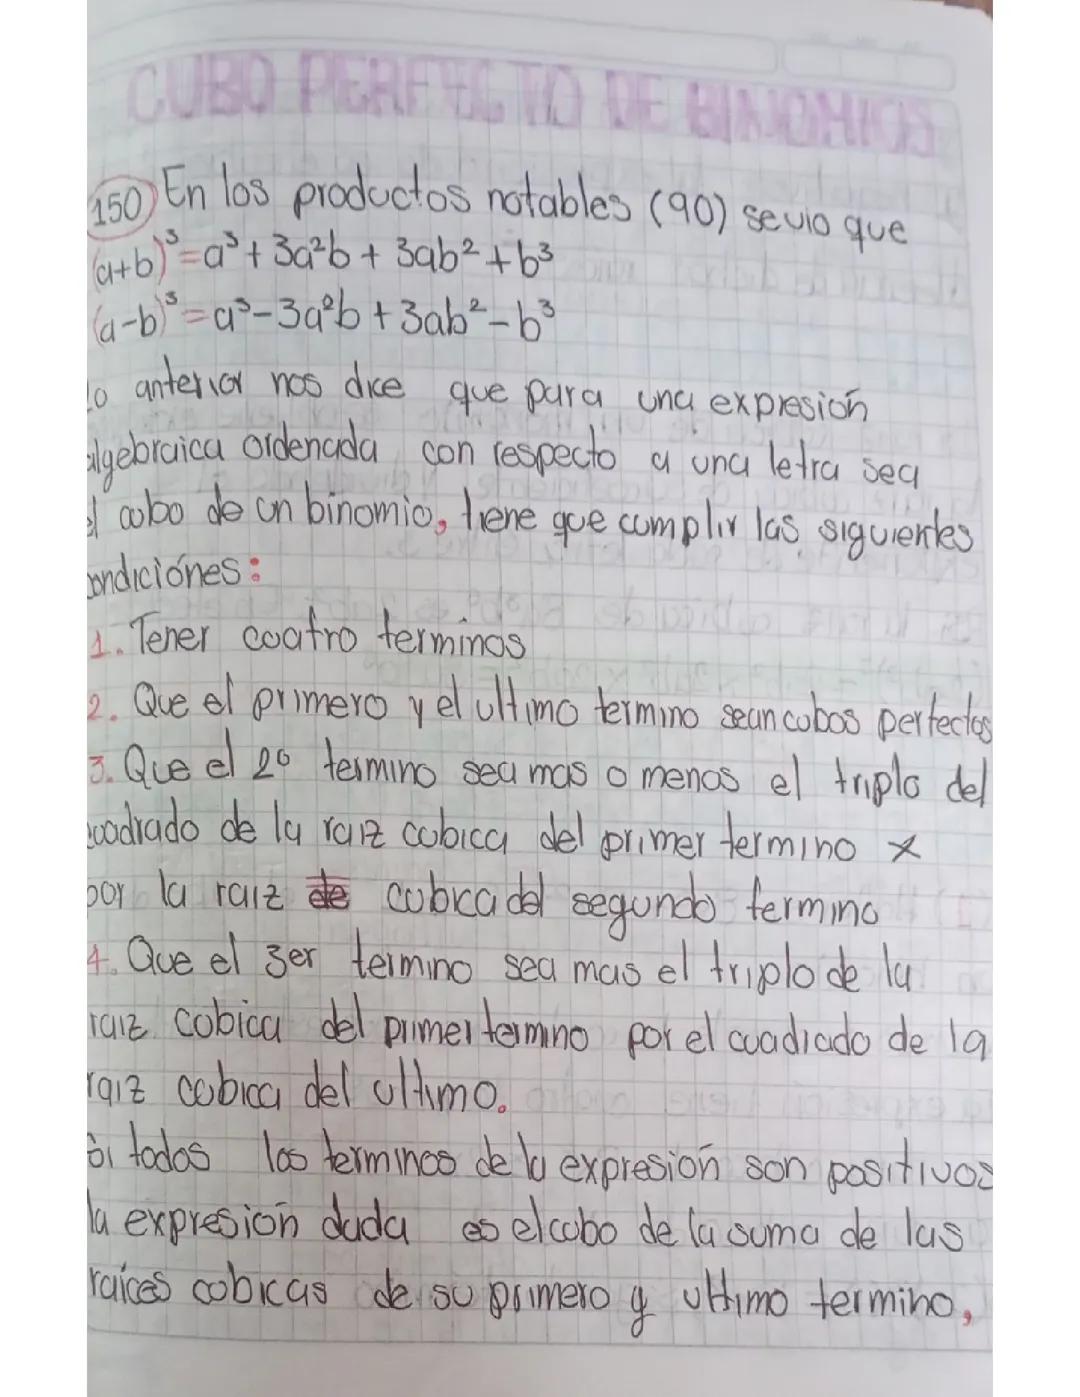 CUBO PERFECTO DE BINOMIOS
150) En los productos notables (90) se vio que
(a+b)³=a³+3a²b+3ab²+b³
(a-b)³=a³-3a²b+3ab²-b³
Lo anterior nos dice que para una expresión
algebraica ordenada con respecto a una letra sea
el cobo de un binomio, tiene que cumplir las siguientes
condiciónes:
1. Tener cuatro terminos
2. Que el primero y el ultimo termino sean cubos perfectos
3. Que el 2º termino sea mas o menos el triplo del
cuadrado de la raiz cubica del primer termino x
por la raiz de cubica del segundo termino
4. Que el 3er termino sea mas el triplo de la
raiz cobica del primer termino por el cuadrado de la
raiz cubica del ultimo.
Si todos los terminos de la expresión son positivos
la expresión dada es el cubo de la suma de las
raíces cobicas de su primero y ultimo termino,